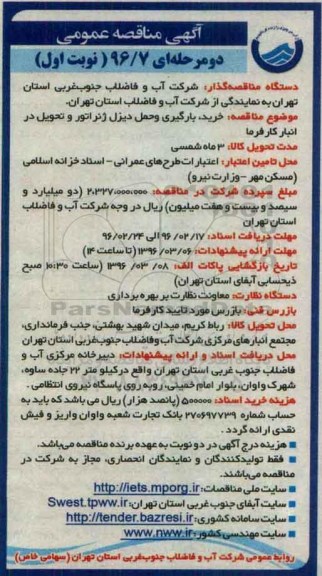 آگهی مناقصه عمومی
دومرحله‌ای ۹۶/۷ ( نوبت اول)
دستگاه مناقصه‌گذار: شرکت آب و فاضلاب جنوب‌غربی استان
تهران به نمایندگی از شرکت آب و فاضلاب استان تهران.
موضوع مناقصه: خرید، بارگیری وحمل دیزل ژنراتور و تحویل در
انبار کارفرما
مدت تحویل کالا: ۳ ماه شمسی
محل تامین اعتبار: اعتبارات طرح‌های عمرانی - اسناد خزانه اسلامی
(مسکن مهر - وزارت نیرو)
مبلغ سپرده شرکت در مناقصه: ۲,۳۲۷,۰۰۰,۰۰۰ (دو میلیارد و
سیصد و بیست و هفت میلیون) ریال در وجه شرکت آب و فاضلاب
استان تهران
مهلت دریافت اسناد: ۹۶/۰۲/۱۷ الی ۹۶/۰۲/۲۴
مهلت ارائه پیشنهادات: ۱۳۹۶/۰۳/۰۶ (تا ساعت ۱۴)
تاریخ بازگشایی پاکات الف: ۰۸ /۰۳ /۱۳۹۶ (ساعت ۱۰:۳۰ صبح
ذیحسابی آبفای استان تهران)
دستگاه نظارت: معاونت نظارت بر بهره برداری
بازرس فنی: بازرس مورد تایید کارفرما
محل تحویل کالا: رباط کریم، میدان شهید بهشتی، جنب فرمانداری،
مجتمع انبارهای مرکزی شرکت آب وفاضلاب جنوب‌غربی استان تهران
محل دریافت اسناد و ارائه پیشنهادات: دبیرخانه مرکزی آب و
فاضلاب جنوب غربی استان تهران واقع درکیلو متر ۲۲ جاده ساوه،
شهرک واوان، بلوار امام خمینی، روبه روی پاسگاه نیروی انتظامی .
هزینه خرید اسناد: ۵۰۰۰۰۰ (پانصد هزار) ریال می باشد که باید به
حساب شماره ۲۷۰۶۹۷۷۳۹ بانک تجارت شعبه واوان واریز و فیش
نقدی ارائه گردد .
■ هزینه درج آگهی در دو نوبت به عهده برنده مناقصه می‌باشد.
■ فقط تولیدکنندگان و نمایندگان انحصاری، مجاز به شرکت در
مناقصه می‌باشند.
■ سایت ملی مناقصات: http://iets.mporg.ir
■ سایت آبفای جنوب غربی استان تهران: Swest.tpww.ir
■ سایت سامانه کشوری: http://tender.bazresi.ir
■ سایت مهندسی کشور: www.nww.ir
روابط عمومی شرکت آب و فاضلاب جنوب‌غربی استان تهران (سهامی خاص)